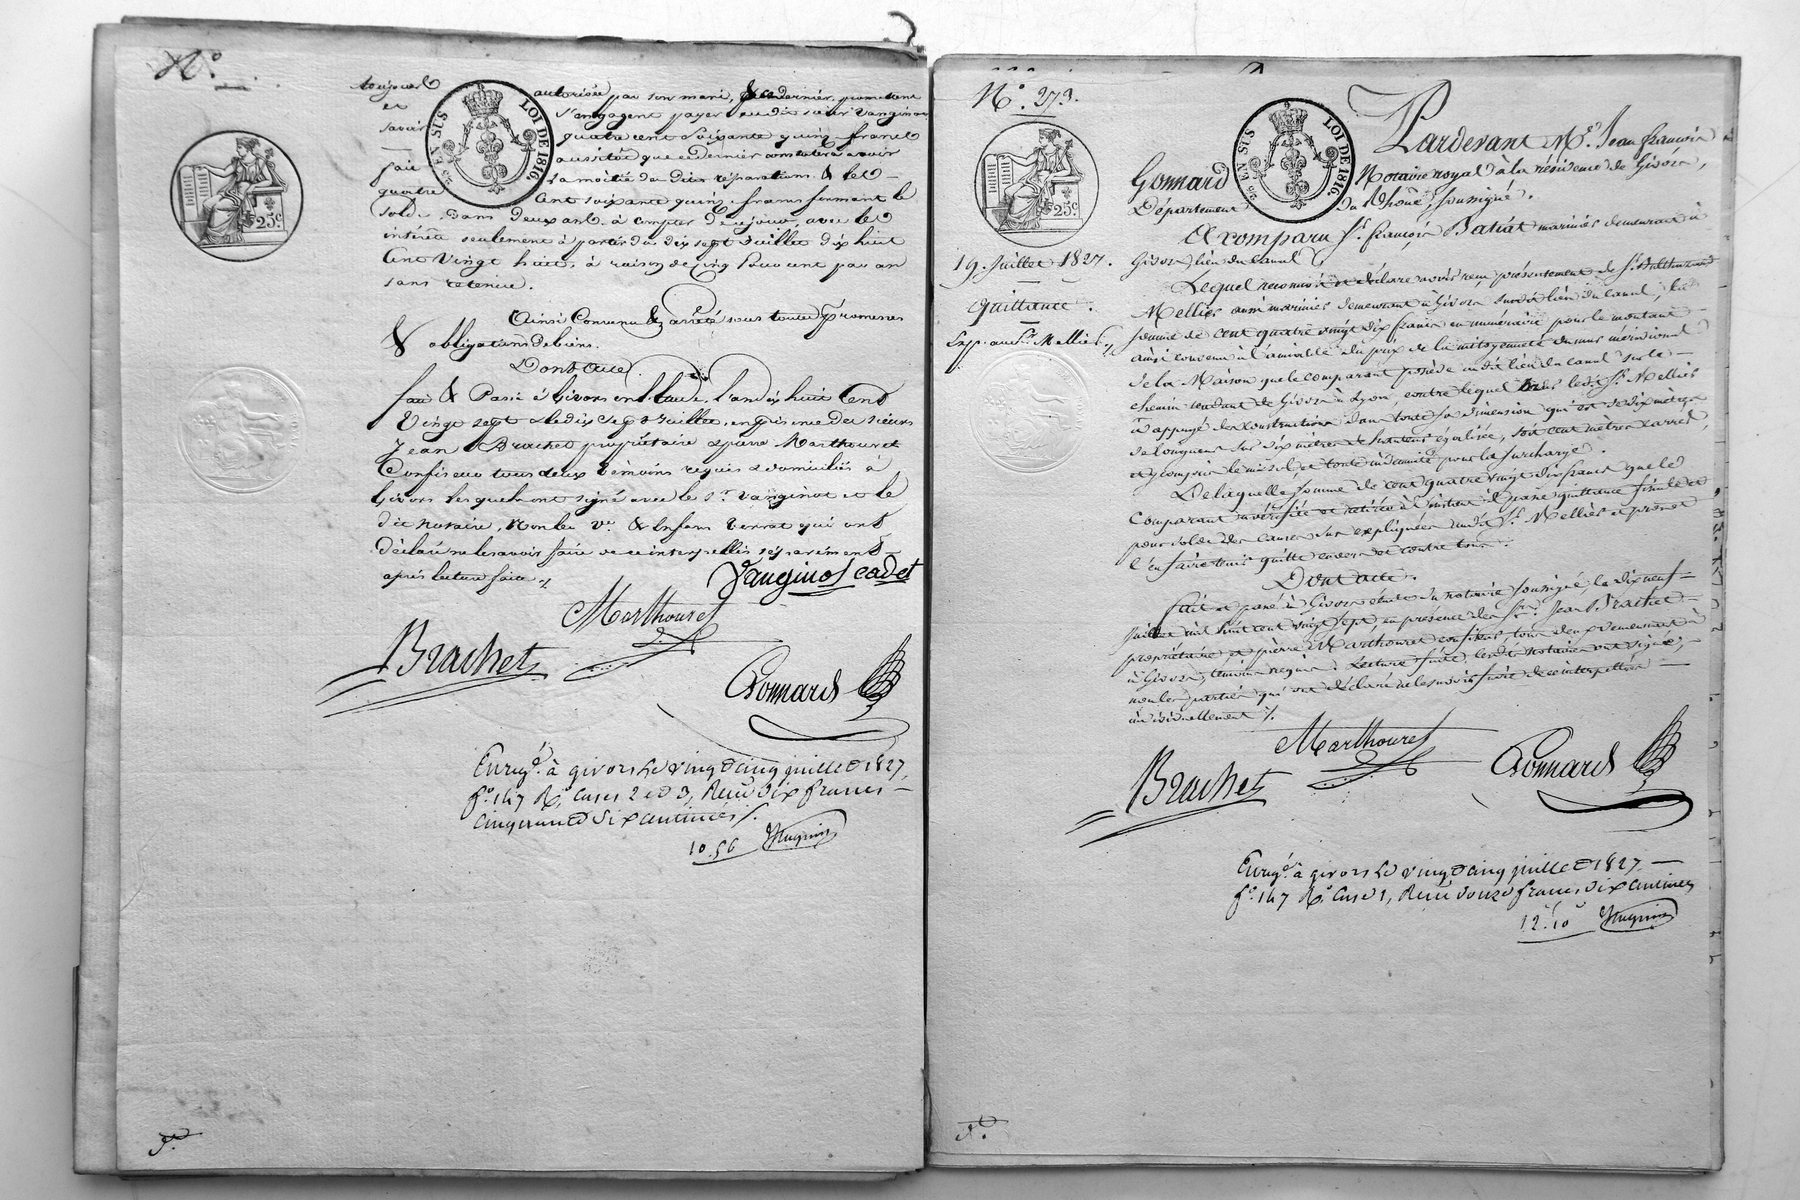 N°.
25c
EN SUS
LOI DE 1816.
toujours autorisée par son mari, & ce dernier, promettent
et s'engagent payer audit sieur Vanginot
savoir quatre cent soixante quinze francs
aussitôt que ce dernier
fait la moitié des dites réparations & les
quatre cent soixante quinze francs formant le
solde, dans deux ans à compter de ce jour avec les
intérêts seulement à partir du dix sept juillet dix huit
cent vingt huit, à raison de cinq pour cent par an
sans retenue.
Ainsi Convenu & arrêté sous toutes Promesses
& obligations de biens.
Dont acte
fait & Passé à Givors en l'Etude, l'an dix huit cent
vingt sept & le dix sept Juillet, en présence des sieurs
Jean Brachet propriétaire & pierre Marthouret
Confiseur tous deux témoins requis & domiciliés à
Givors lesquels ont signé avec le Sr. Vanginot et le
dit notaire, Non les & enfans qui ont
déclaré ne le savoir faire de ce interpellés séparément
après lecture faite ./.
Vanginot cadet
Marthouret
Brachet
Gonnard
Enregé. à givors le vingt cinq juillet 1827,
f°. 147 R°. Cases 2 et 3, Reçu dix francs
cinquante six centimes ./.
10.56
N°. 273.
25c
EN SUS
LOI DE 1816.
Pardevant Me. Jean françois
Gonnard Notaire royal à la résidence de Givors,
Département du Rhône, soussigné.
A comparu Sr. françois Batiat marinier demeurant à
Givors lieu du canal
19. Juillet 1827.
quittance.
Exp. au Sr. Mellier
Lequel reconnoît et déclare avoir reçu présentement de Sr.
Mellier aussi marinier demeurant à Givors susdit lieu du canal, la
somme de cent quatre vingt dix francs en numéraire pour le montant
ainsi convenu à l'amiable du prix de la mitoyenneté du mur méridional
de la Maison que le comparant possède au dit lieu du canal sur le
chemin tendant de Givors à Lyon, contre lequel mur ledit Sr. Mellier
a appuyé des constructions dans toute sa dimension qui est de dix mètres
de longueur sur dix mètres de hauteur égalisée, soit cent mètres carrés,
et y compris le mi sol, et toute indemnité pour la surcharge.
De laquelle somme de cent quatre vingt dix francs que le
comparant a vérifiée et retirée à l'instant il passe quittance finale et
pour solde des causes sus expliquées audit Sr. Mellier et promet
l'en faire tenir quitte envers et contre tous.
Dont acte.
fait et passé à Givors étude du notaire soussigné, le dix neuf
juillet mil huit cent vingt sept, en présence des Srs. Jean Brachet
propriétaire et pierre Marthouret confiseur, tous deux demeurant à
à Givors, témoins requis. Lecture faite, lesdits et notaire ont signé,
non les parties qui ont déclaré ne le savoir faire de ce interpellées
individuellement ./.
Marthouret
Brachet
Gonnard
Enregé. à givors le vingt cinq juillet 1827
f°. 147 R°. Case 1, Reçu douze francs dix centimes
12.10